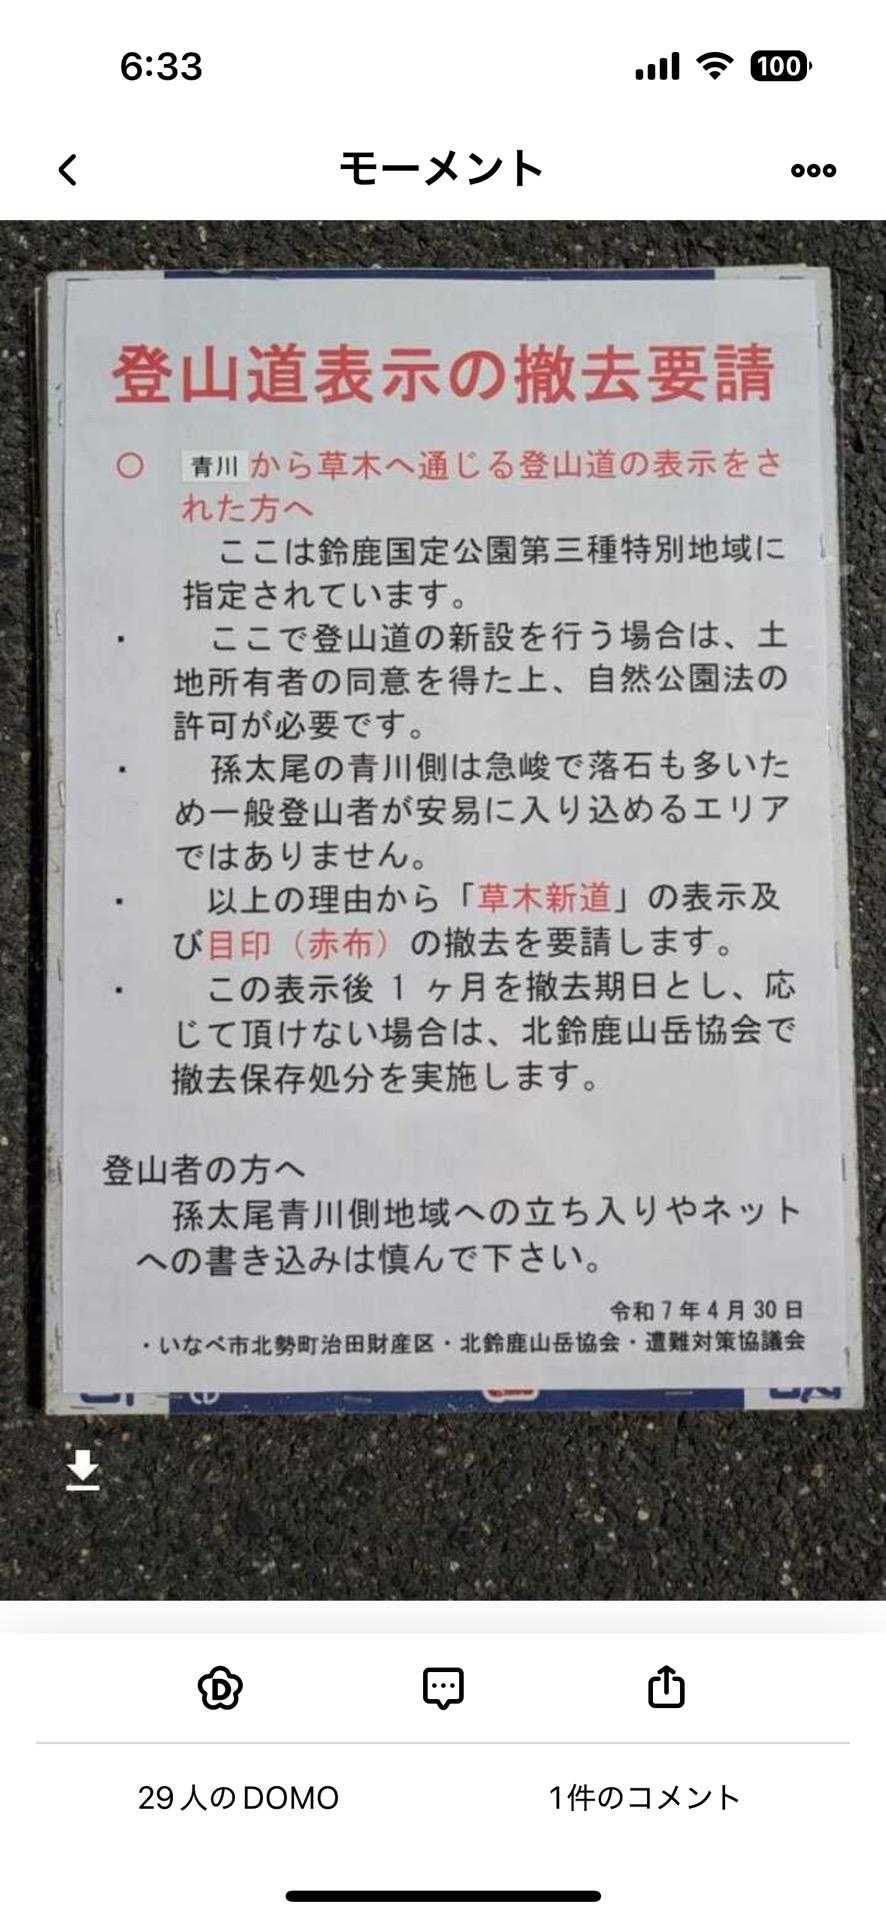 6:33
100
モーメント
登山道表示の撤去要請
○ 青川から草木へ通じる登山道の表示をさ
れた方へ
ここは鈴鹿国定公園第三種特別地域に
指定されています。
・ ここで登山道の新設を行う場合は、土
地所有者の同意を得た上、自然公園法の
許可が必要です。
・ 孫太尾の青川側は急峻で落石も多いた
め一般登山者が安易に入り込めるエリア
ではありません。
・ 以上の理由から「草木新道」の表示及
び目印（赤布）の撤去を要請します。
・ この表示後１ヶ月を撤去期日とし、応
じて頂けない場合は、北鈴鹿山岳協会で
撤去保存処分を実施します。
登山者の方へ
孫太尾青川側地域への立ち入りやネット
への書き込みは慎んで下さい。
令和７年４月30日
・いなべ市北勢町治田財産区・北鈴鹿山岳協会・遭難対策協議会
29人のDOMO
1件のコメント